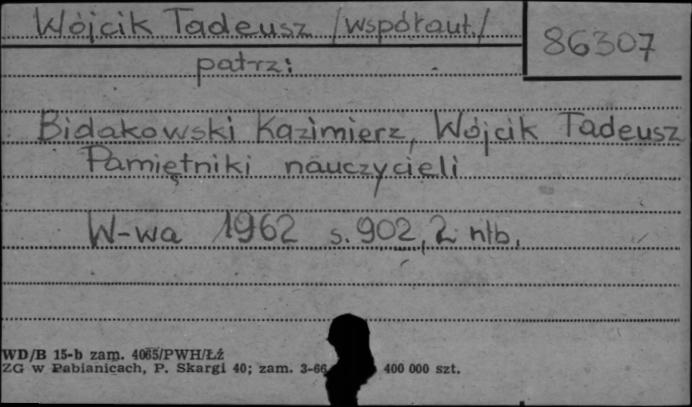 Wójcik Tadeusz /współaut./
86307
patrz:
Bidakowski Kazimierz, Wójcik Tadeusz
Pamiętniki nauczycieli
W-wa 1962 s. 902, 2 nlb.
WD/B 15-b zam. 4065/PWH/Łź
ZG w Pabianicach, P. Skargi 40; zam. 3-66 400 000 szt.